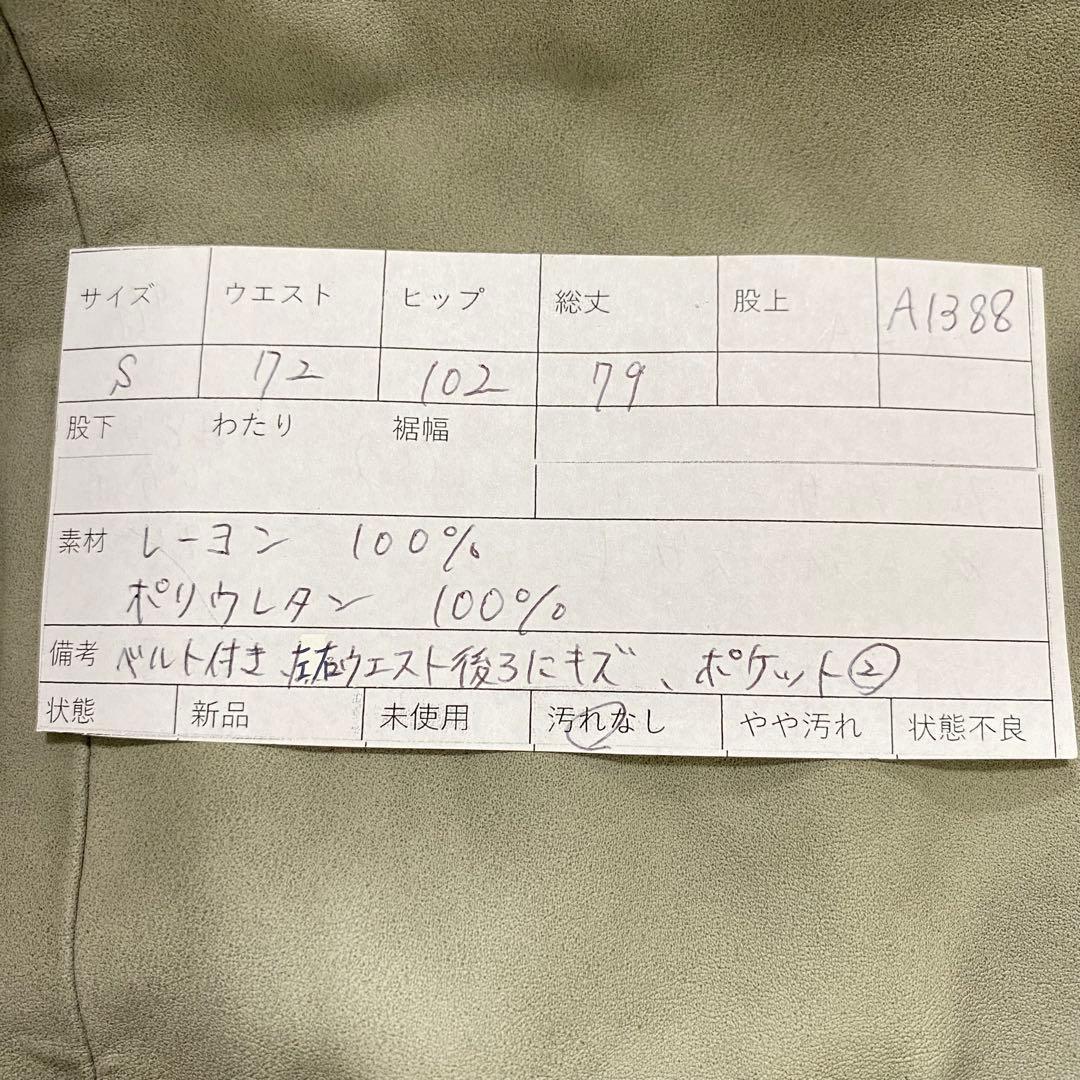 サイズ ウエスト ヒップ 総丈 股上 A1388
S 72 102 79
股下 わたり 裾幅
素材 レーヨン 100%
ポリウレタン 100%
備考 ベルト付き 左右ウエスト後ろにキズ、ポケット②
状態 新品 未使用 汚れなし やや汚れ 状態不良